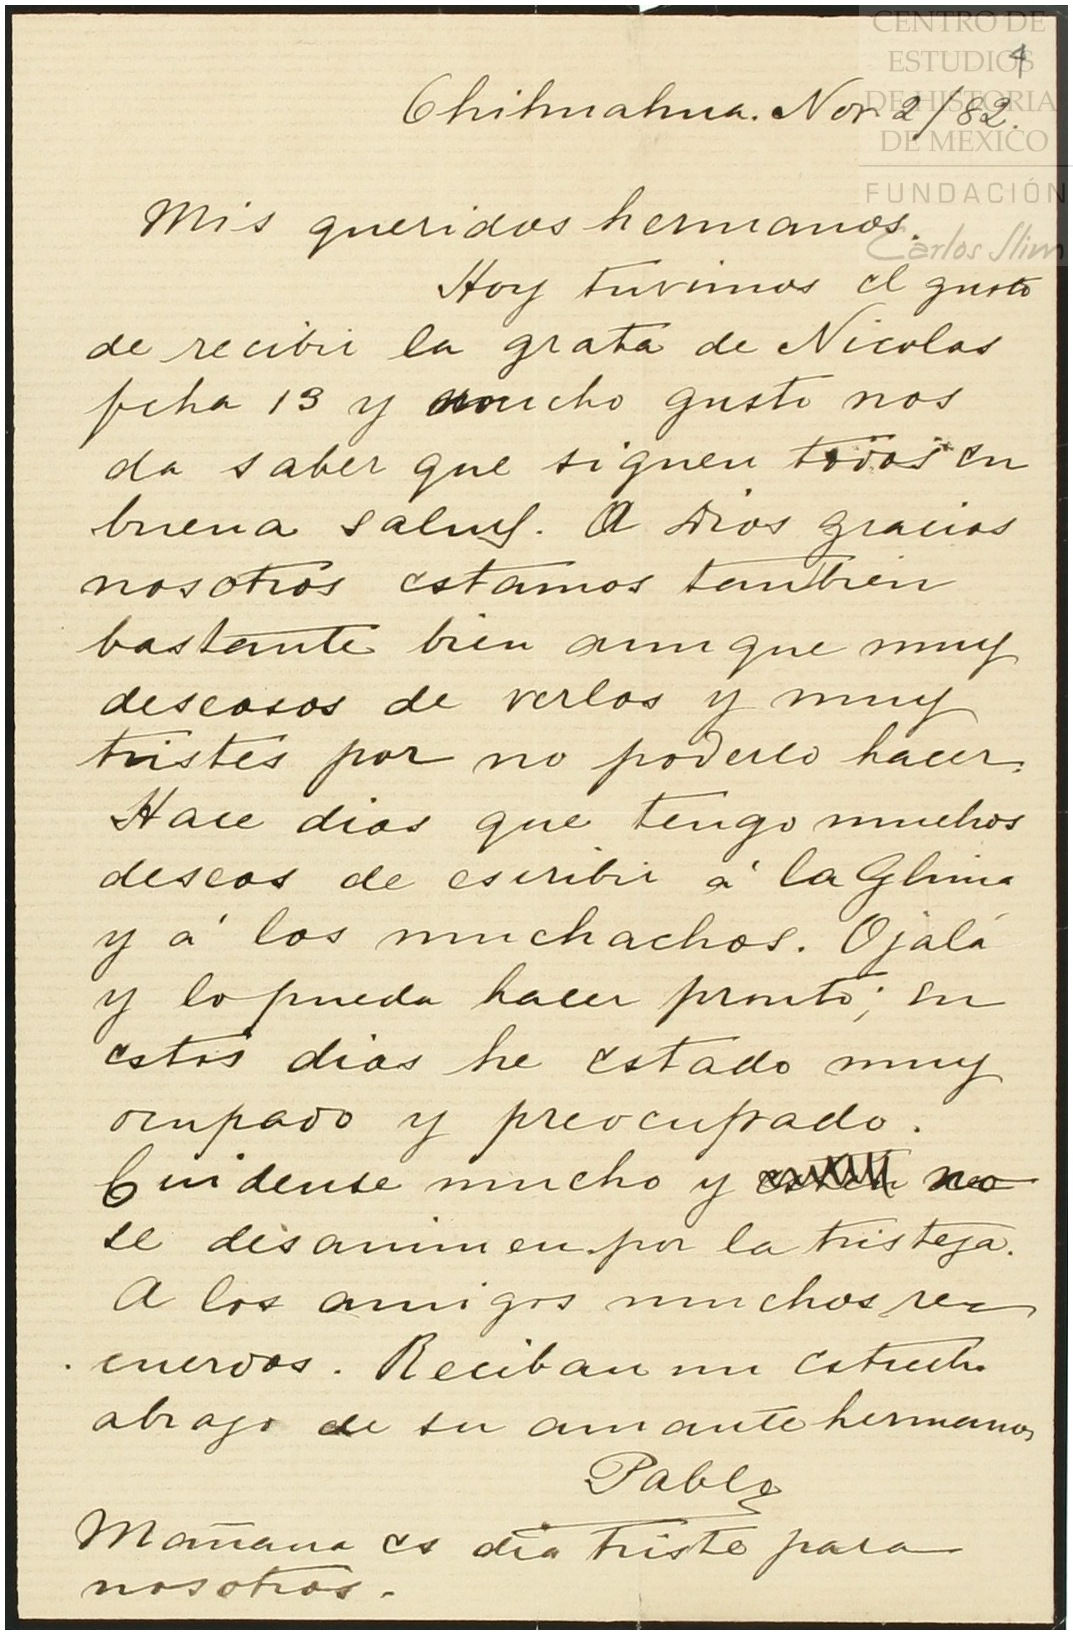 CENTRO DE
ESTUDIOS
DE HISTORIA
DE MEXICO
FUNDACIÓN
Carlos Slim
4
Chihuahua. Nov. 2/82.
Mis queridos hermanos.
Hoy tuvimos el gusto
de recibir la grata de Nicolas
fcha 13 y mucho gusto nos
da saber que siguen todos en
buena salud. A Dios gracias
nosotros estamos tambien
bastante bien aunque muy
deseosos de verlos y muy
tristes por no poderlo hacer.
Hace dias que tengo muchos
deseos de escribir á la
y á los muchachos. Ojalá
y lo pueda hacer pronto; en
estos dias he estado muy
ocupado y preocupado.
Cuidense mucho y no
se desanimen por la tristeza.
A los amigos muchos re-
cuerdos. Reciban un estrecho
abrazo de su amante hermano
Pablo
Mañana es dia triste para
nosotros.